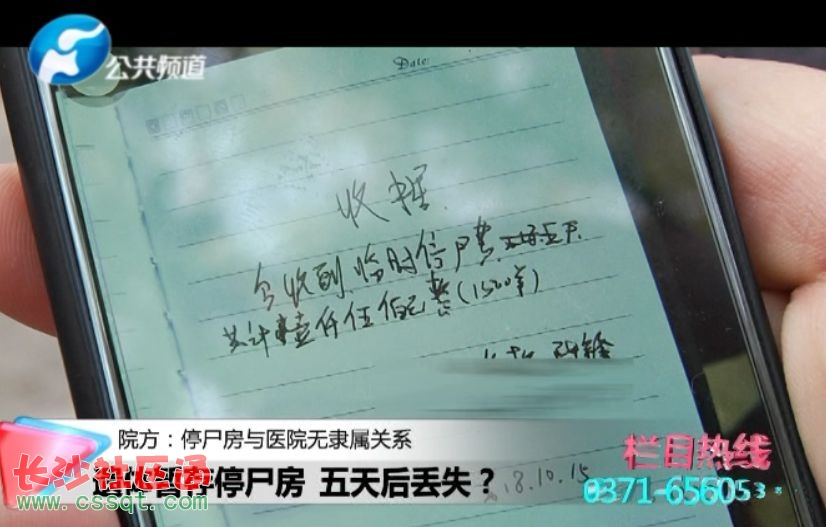 公共频道
Date:
收据
今收到临时停尸费
共计壹仟伍佰元整(1500羊)
院方：停尸房与医院无隶属关系
停尸房 五天后丢失？
长沙社区通
www.cssqt.com
栏目热线
0371-656053
8.10.15